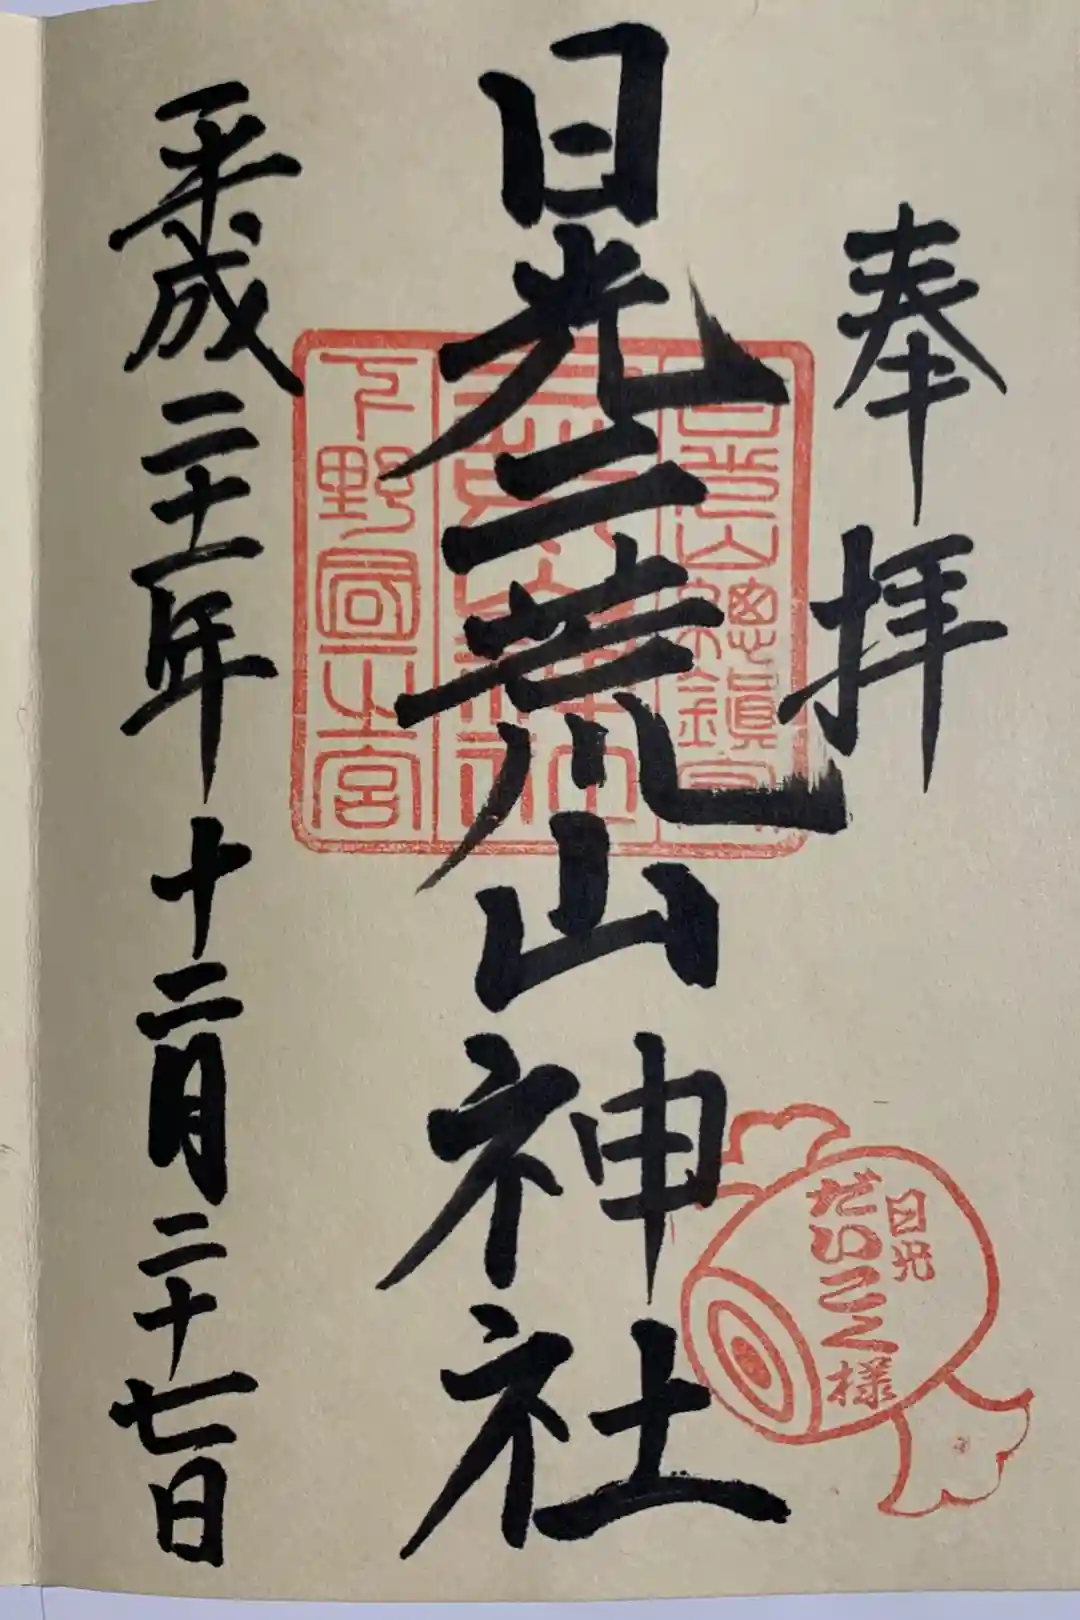 奉拝
日光山總鎮守
日光二荒山神社
二荒山神社
下野國一之宮
平成二十一年十二月二十七日
日光
だいこく様